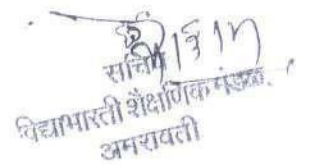 सचिव
विद्याभारती शैक्षणिक मंडळ.
अमरावती